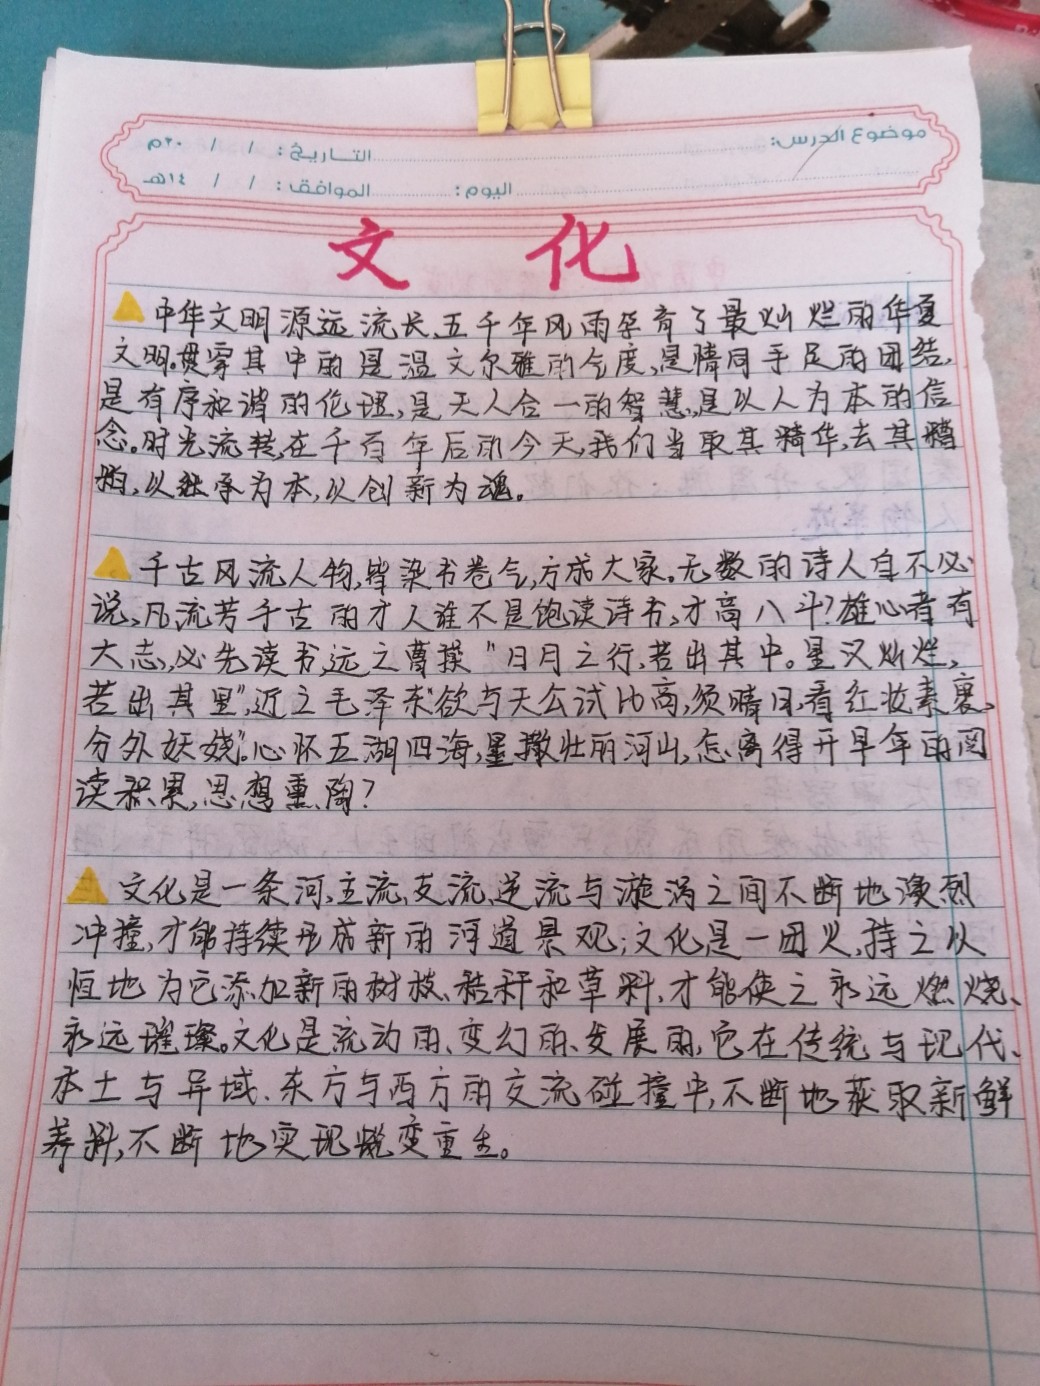 موضوع الدرس:
التاريخ: / / ٢٠م
اليوم: الموافق: / / ١٤هـ
文 化
中华文明源远流长,五千年风雨孕育了最灿烂的华夏
文明。贯穿其中的是温文尔雅的气度,是情同手足的团结,
是有序和谐的伦理,是天人合一的智慧,是以人为本的信
念。时光流转,在千百年后的今天,我们当取其精华,去其糟
粕,以继承为本,以创新为魂。
千古风流人物,毕染书卷气,方成大家。无数的诗人自不必
说,凡流芳千古的才人谁不是饱读诗书,才高八斗?雄心者有
大志,必先读书,远之曹操"日月之行,若出其中。星汉灿烂,
若出其里",近之毛泽东"欲与天公试比高,须晴日,看红妆素裹,
分外妖娆"。心怀五湖四海,墨撒壮丽河山,怎离得开早年的阅
读积累,思想熏陶?
文化是一条河,主流,支流,逆流与漩涡之间不断地激烈
冲撞,才能持续形成新的河道景观;文化是一团火,持之以
恒地为它添加新的树枝、秸秆和草料,才能使之永远燃烧、
永远璀璨。文化是流动的、变幻的、发展的,它在传统与现代、
本土与异域、东方与西方的交流碰撞中,不断地获取新鲜
养料,不断地实现蜕变重生。